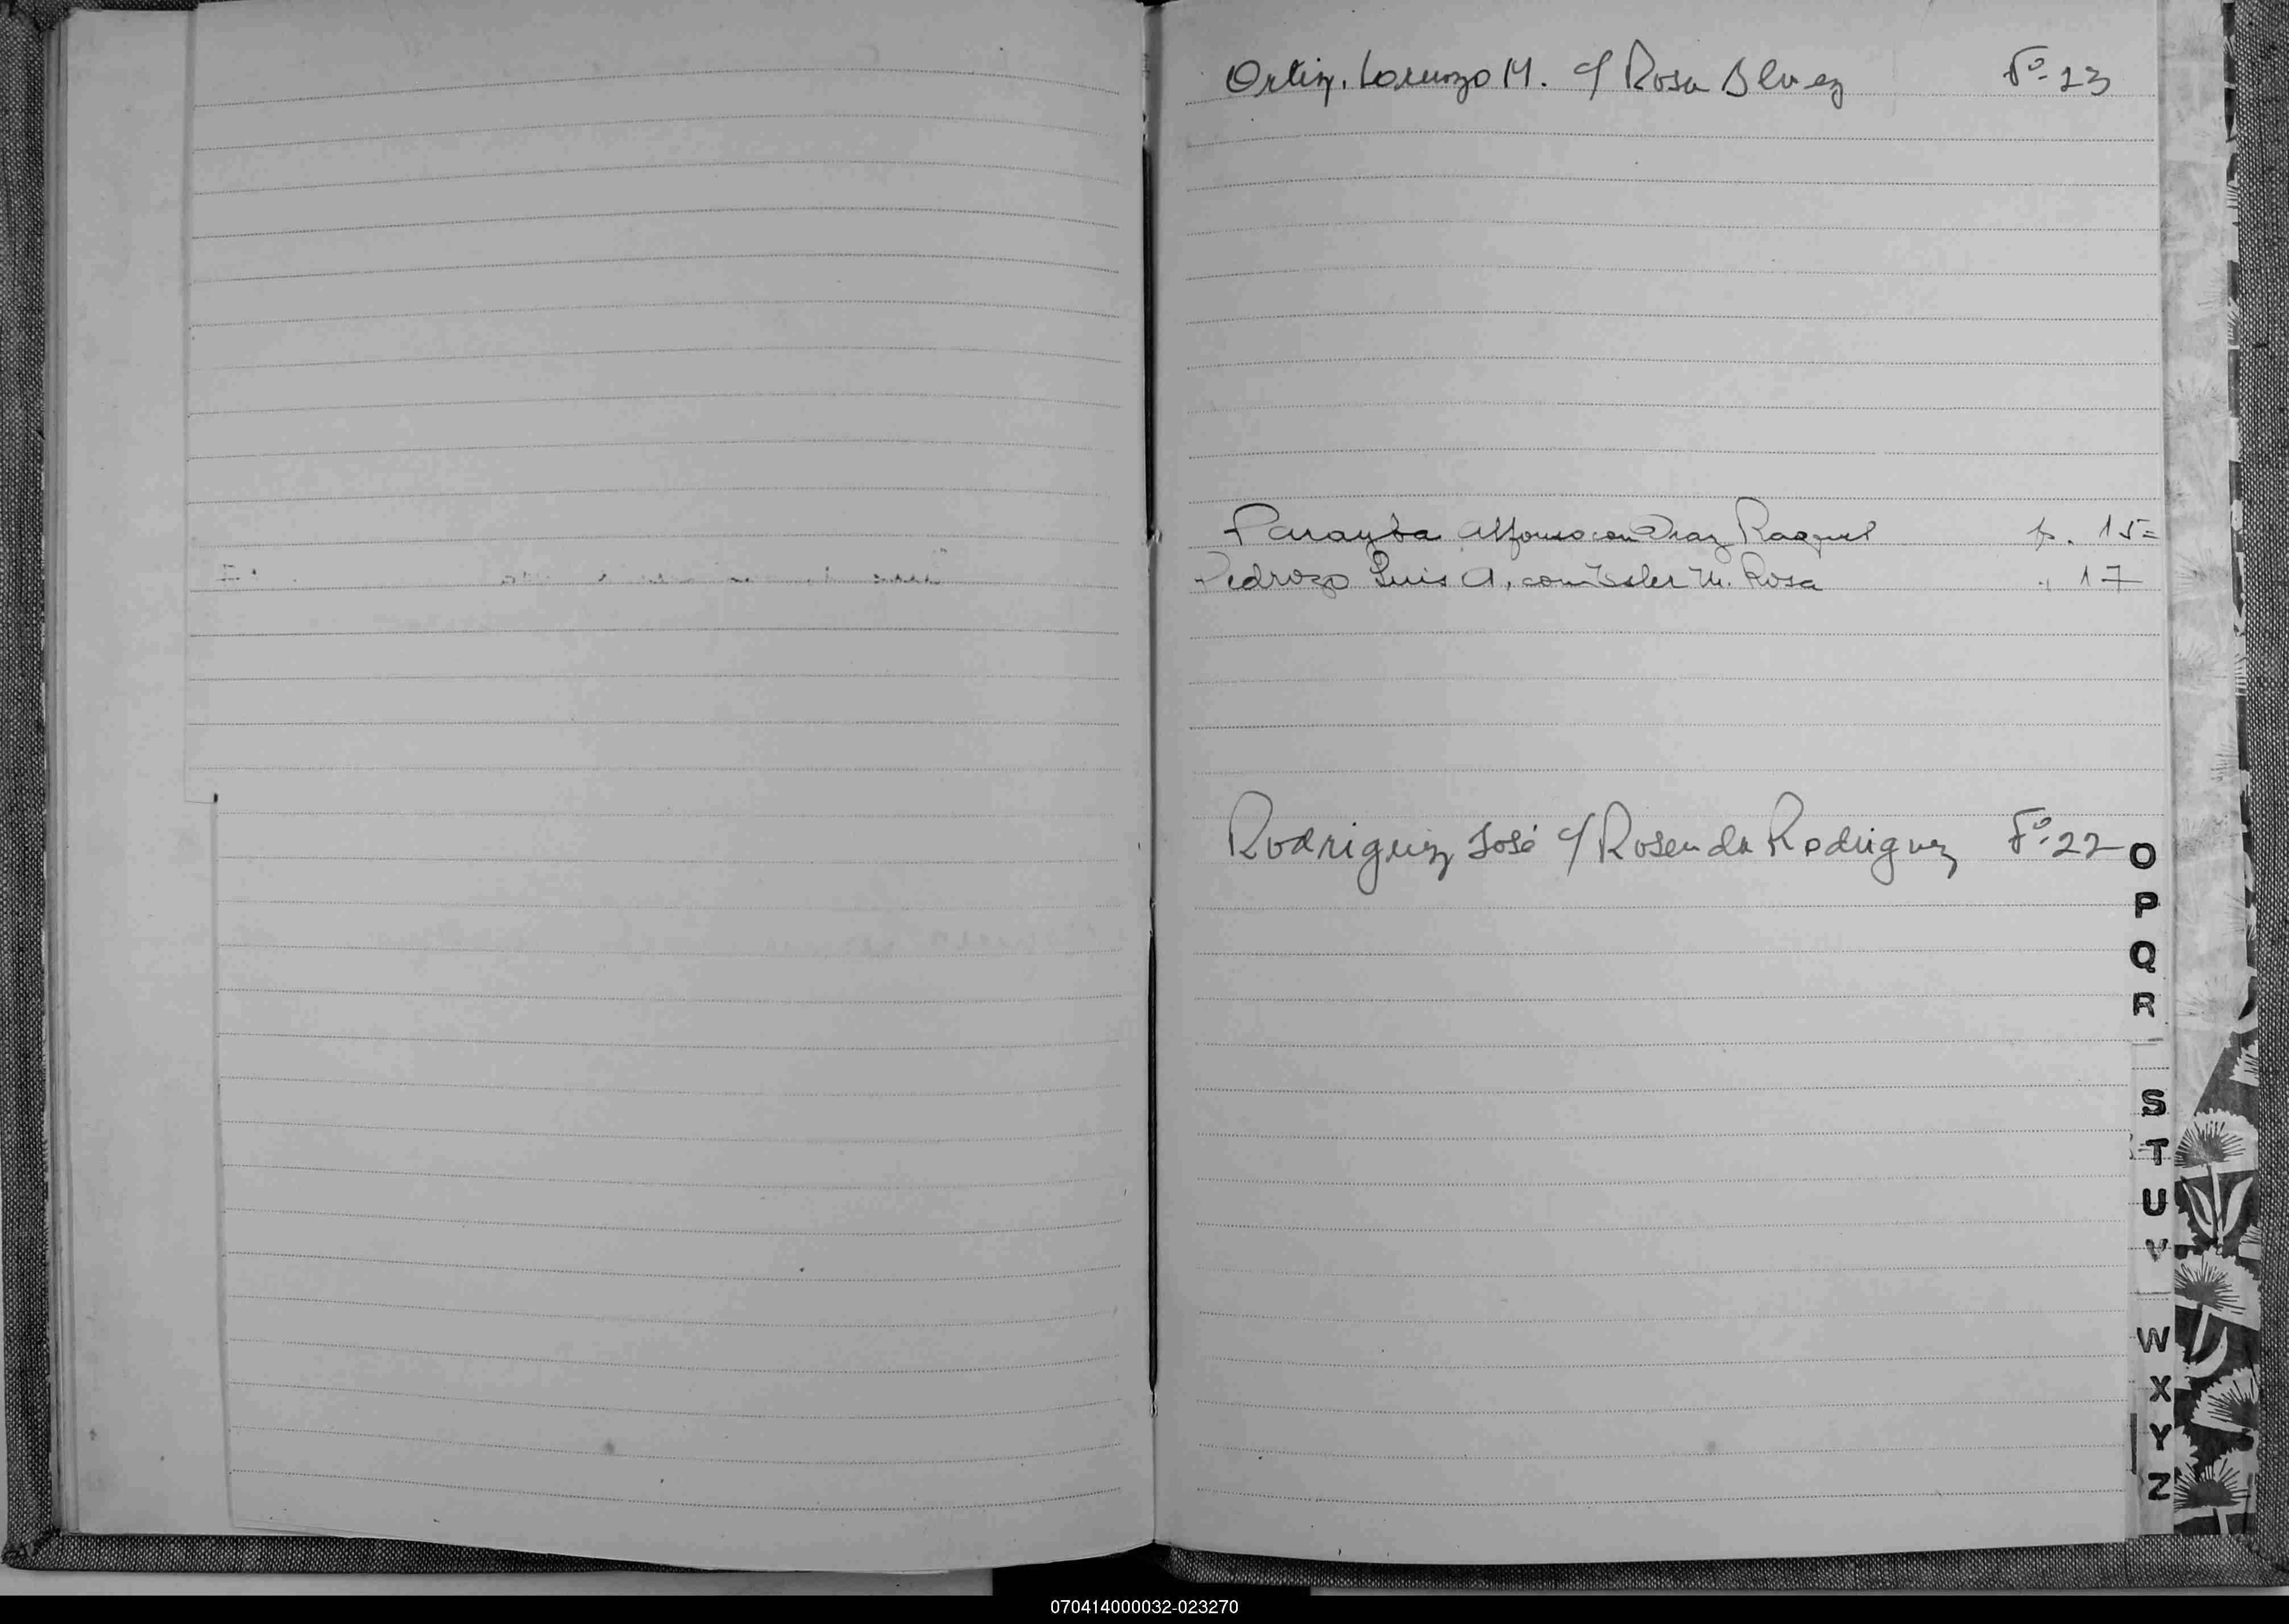 Ortiz, Lorenzo M. c/ Rosa Blvez Fº 23
Parayba Alfonso con Diaz Raquel p. 15=
Pedrozo Luis A, con Isler M. Rosa " 17
Rodriguez José c/ Rosenda Rodriguez Fº 22
O
P
Q
R
S
T
U
V
W
X
Y
Z
070414000032-023270